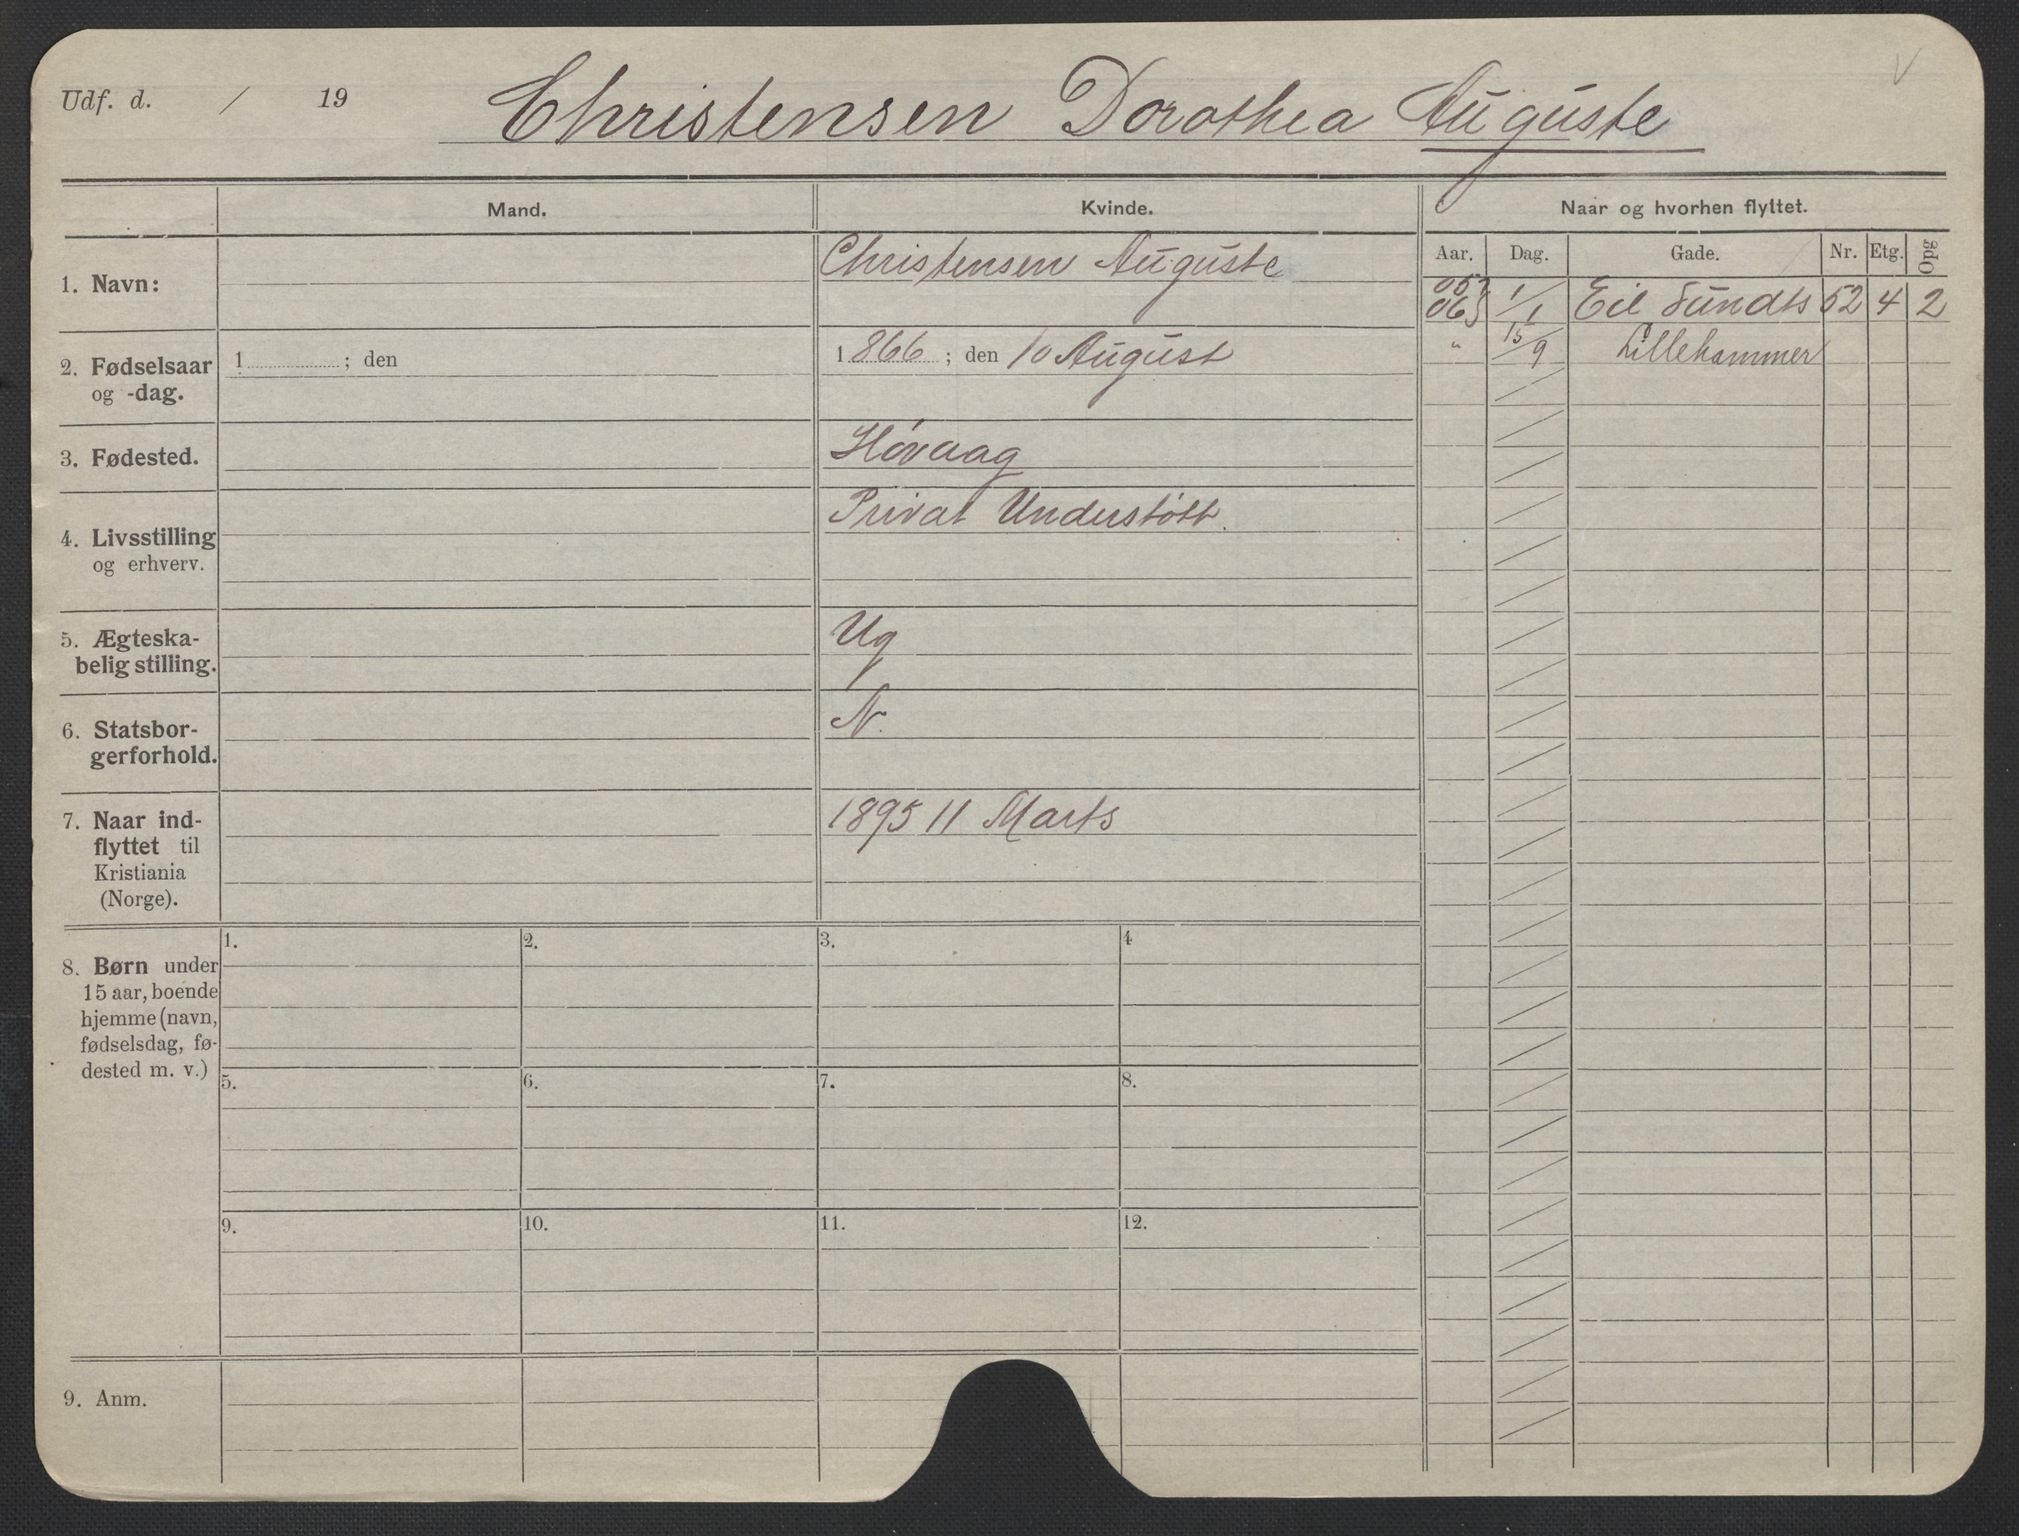 Udf. d. / 19 Christensen Dorothea Auguste
Mand. Kvinde. Naar og hvorhen flyttet.
Aar. Dag. Gade. Nr. Etg. Opg
1. Navn: Christensen Auguste
05 1/1 Eil Sundts 52 4 2
06
" 15/9 Lillehammer
2. Fødselsaar 1 ; den 1866 ; den 10 August
og -dag.
3. Fødested. Høvaag
4. Livsstilling Privat Understøtt.
og erhverv.
5. Ægteska-
belig stilling. Ug
6. Statsbor- N.
gerforhold.
7. Naar ind- 1895 11 Marts
flyttet til
Kristiania
(Norge).
8. Børn under
15 aar, boende
hjemme (navn,
fødselsdag, fø-
dested m. v.)
1. 2. 3. 4
5. 6. 7. 8.
9. 10. 11. 12.
9. Anm.